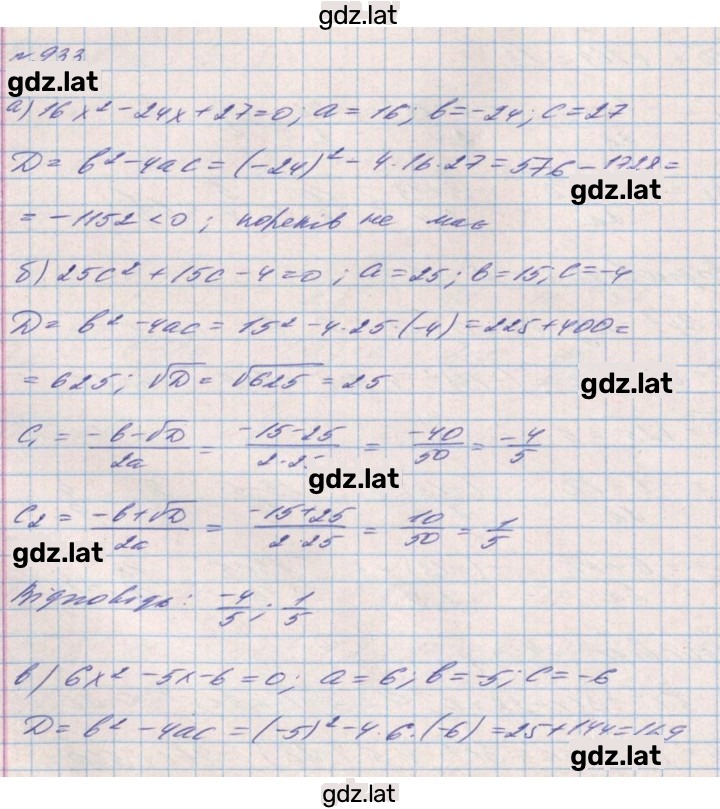 gdz.lat
№ 933
gdz.lat
а) 16x² - 24x + 27 = 0; a = 16; b = -24; c = 27
D = b² - 4ac = (-24)² - 4·16·27 = 576 - 1728 =
gdz.lat
= -1152 < 0; коренів не має
б) 25c² + 15c - 4 = 0; a = 25; b = 15; c = -4
D = b² - 4ac = 15² - 4·25·(-4) = 225 + 400 =
= 625; √D = √625 = 25
gdz.lat
c₁ = (-b-√D)/2a = (-15-25)/2·2 = -40/50 = -4/5
gdz.lat
c₂ = (-b+√D)/2a = (-15+25)/2·25 = 10/50 = 1/5
gdz.lat
Відповідь: -4/5; 1/5
в) 6x² - 5x - 6 = 0; a = 6; b = -5; c = -6
D = b² - 4ac = (-5)² - 4·6·(-6) = 25 + 144 = 169
gdz.lat
gdz.lat